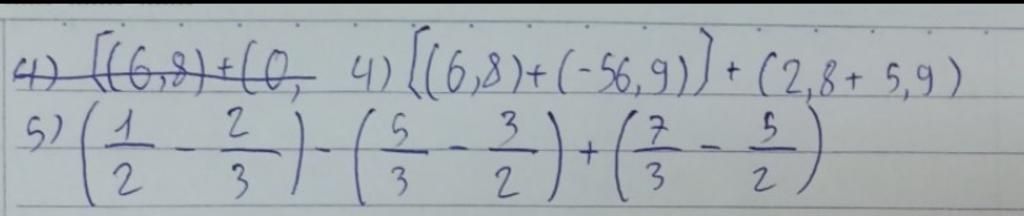 4) [(6,8)+(0, 4) [(6,8)+(-56,9)] + (2,8+ 5,9)
5) (1/2 - 2/3) - (5/3 - 3/2) + (7/3 - 5/2)